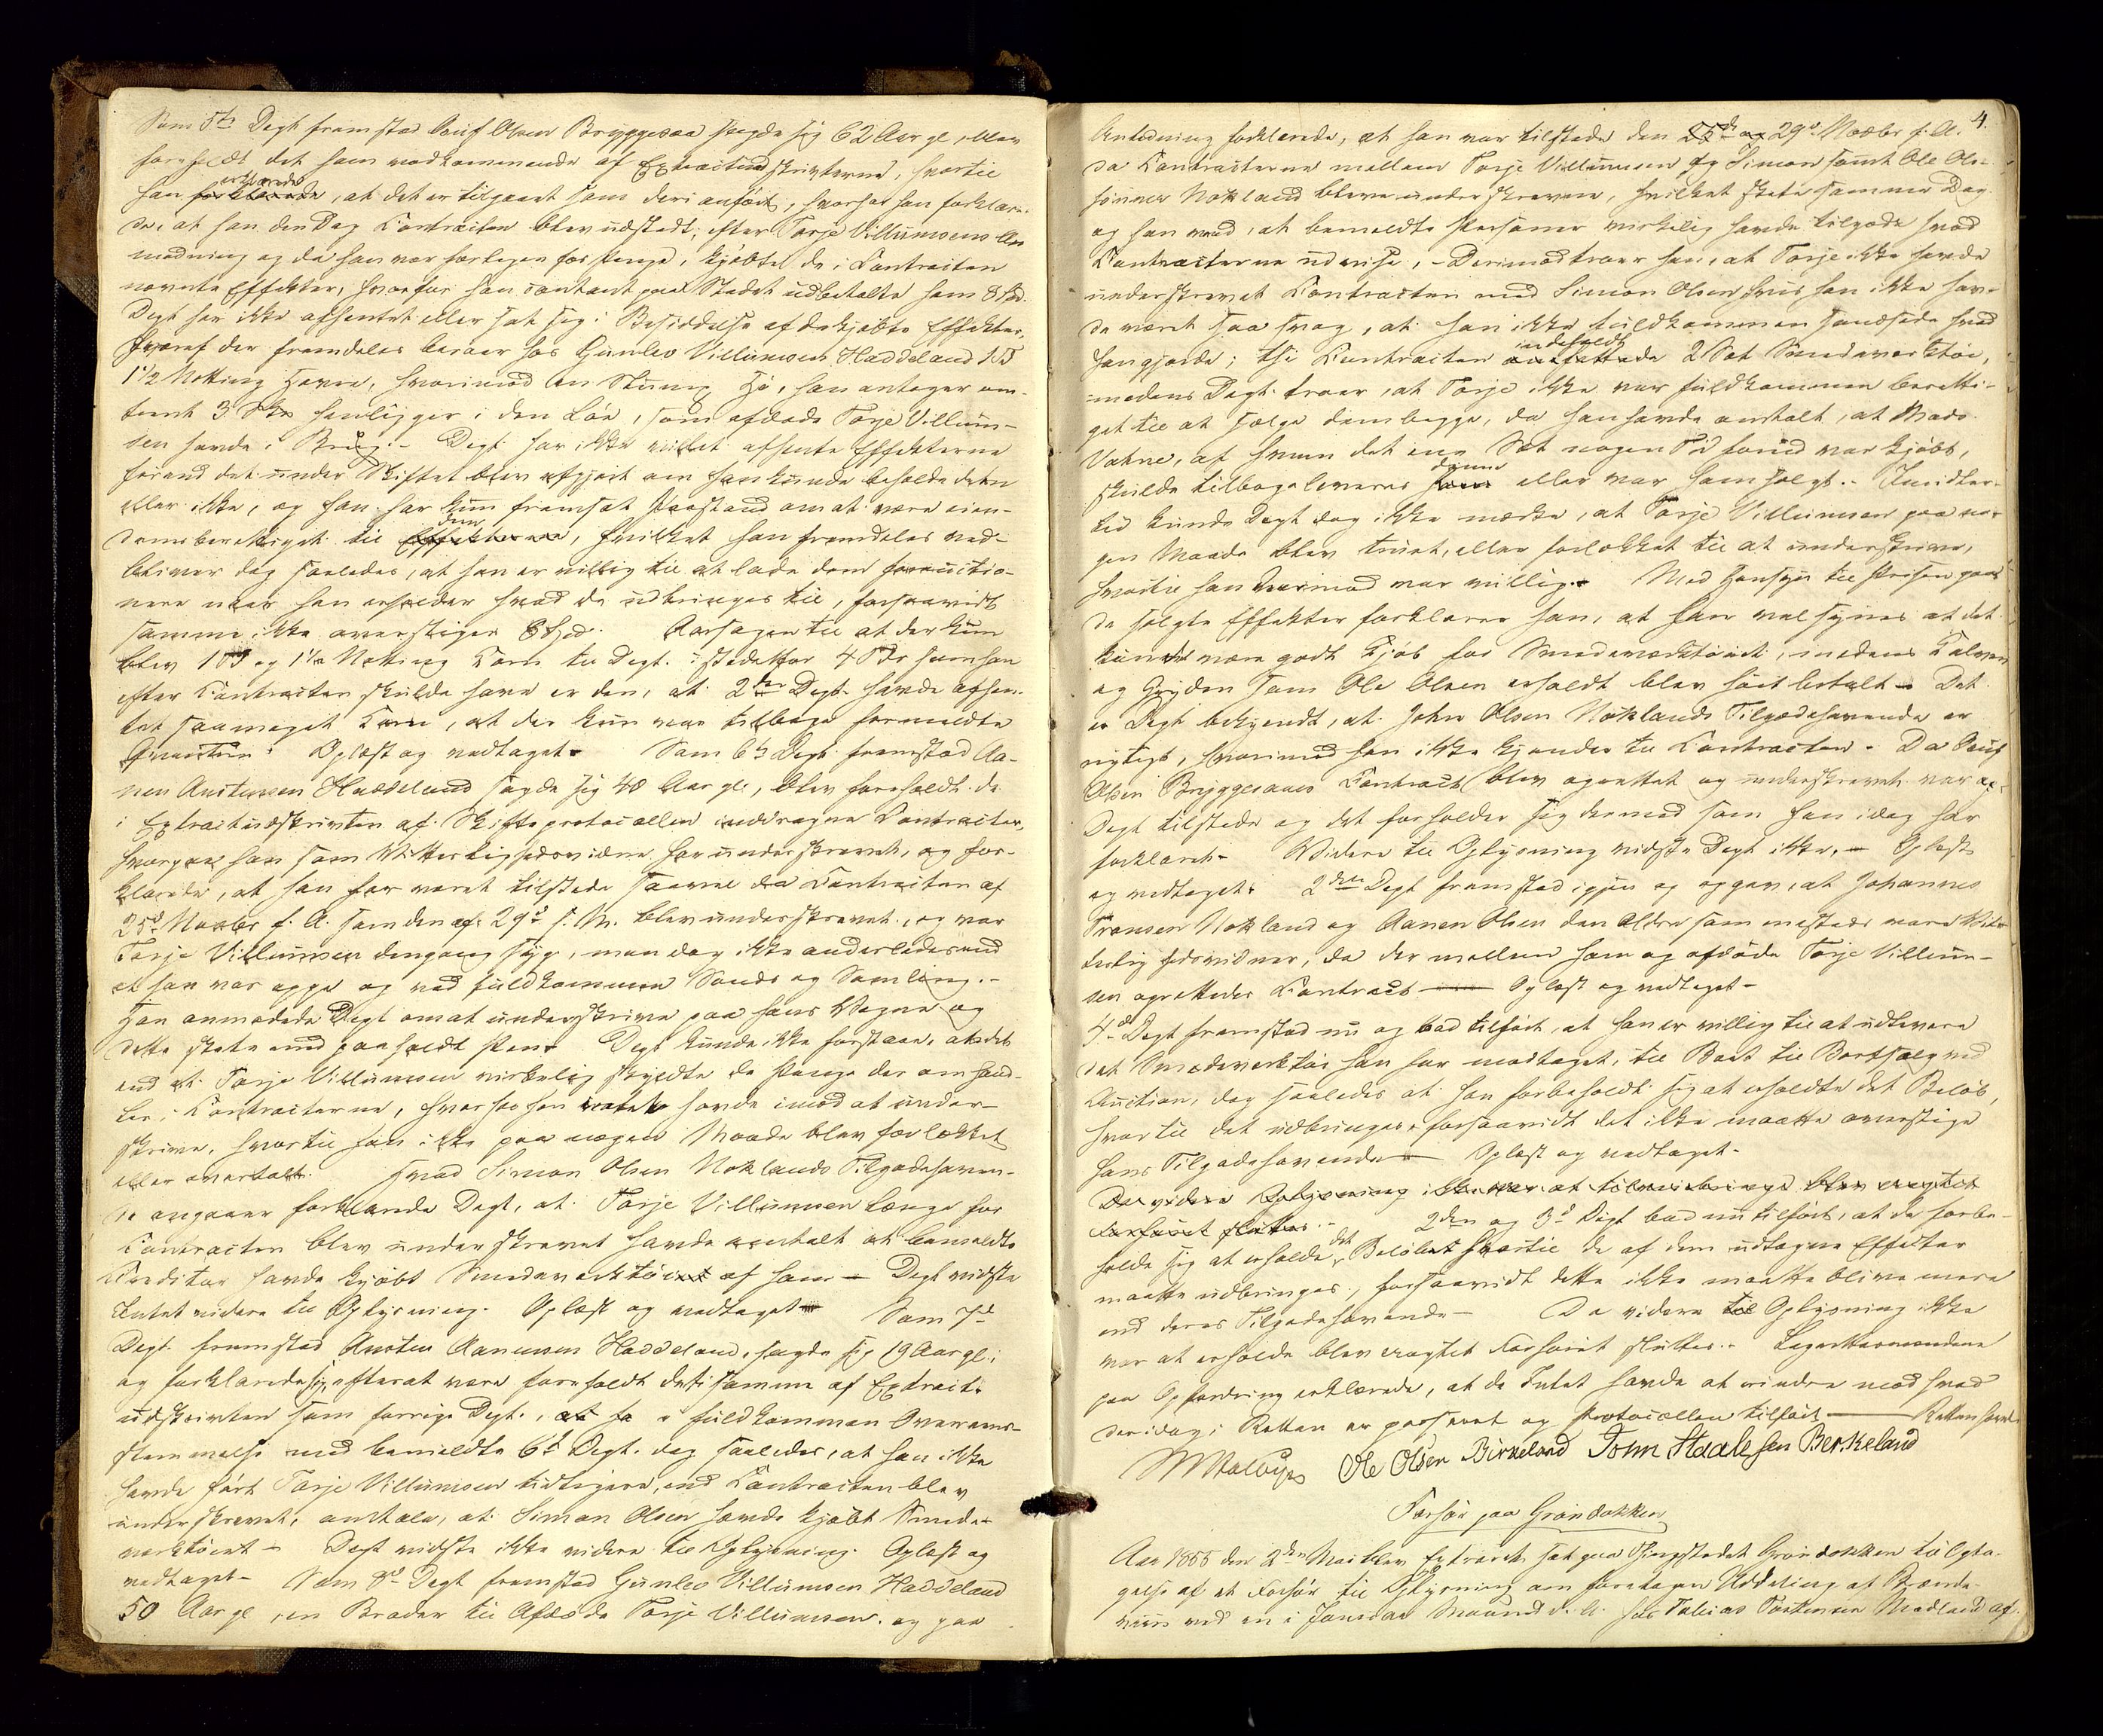 Som 5te Dept fremstod Ouif Olsen Bryggesaa sagde sig 62 Aar gl, blev
foreholdt det ham vedkommende af Extractudskrivterne, hvortil
han erklærede, at det er tilgaaet som deri anført, hvorhos han forklare-
de, at han den Dag Contracten blev udstedt, efter Torje Villumsens An-
modning og da han var forlegen for Penge, kjøbte de i Contracten
nævnte Effekter, hvorfor han contant paa Stedet udbetalte ham 8 Spd.
Dept har ikke afhentet eller sat sig i Besiddelse af de kjøbte Effekter,
hvoraf der fremdeles beroer hos Gunlev Villumsen Haddeland 1 T
1 1/2 Notting Havre, hvorimod en Slump Hø, han antager om-
trent 3 henligger i den Løe, som afdøde Torje Villum-
sen havde i Brug.- Dept har ikke villet afhente Effekterne
førend det under Skiftet blev afgjort om han kunde beholde dem
eller ikke, og han har kun fremsat Paastand om at være eien-
domsberettiget til dem, hvilket han fremdeles ved-
bliver dog saaledes, at han er villig til at lade dem forauctio-
nere naar han erholder hvad de udbringes til, forsaavidt
samme ikke overstiger 8 Spd. Aarsagen til at der kun
blev 1 T og 1 1/2 Notting Korn til Dept. istedetfor 4 Tdr som han
efter Contracten skulde have er den, at 2den Dept. havde afhen-
tet saameget Korn, at der kun var tilbage formeldte
Qvantum. Oplæst og vedtaget. Som 6te Dept fremstod Aa-
nen Austensen Haddeland sagde sig 48 Aar gl., blev foreholdt de
i Extractudskrivten af Skifteprotocollen inddragne Contracter,
hvorpaa han som Vitterlighedsvidne har underskrevet, og for-
klarede, at han har været tilstede saavel da Contracten af
25de Novbr f. A. som den af 29de s. M. blev underskrevet, og var
Torje Villumsen dengang syg, men dog ikke anderledes end
at han var oppe og ved fuldkommen Sands og Samling.-
Han anmodede Dept om at underskrive paa hans Vegne og
dette skete med paaholdt Pen. Dept kunde ikke forstaae, andet
end at Torje Villumsen virkelig skyldte de Penge der omhand-
les i Contracterne, hvorhos han Intet havde imod at under-
skrive, hvortil han ikke paa nogen Maade blev forlokket
eller overtalt. Hvad Simon Olsen Noklands Tilgodehaven-
de angaaer forklarede Dept, at Torje Villumsen længe før
Contracten blev underskrevet havde omtalt at bemeldte
Creditor havde kjøbt Smedeverktøiet af ham - Dept vidste
Intet videre til Oplysning. Oplæst og vedtaget Som 7de
Dept. fremstod Austen Aanensen Haddeland, sagde sig 19 Aar gl.,
og forklarede sig, efterat være foreholdt det samme af Extract-
udskrivten som forrige Dept., i fuldkommen Overeens-
stemmelse med bemeldte 6te Dept. dog saaledes, at han ikke
havde hørt Torje Villumsen tidligere, end Contracten blev
underskrevet, omtale, at Simon Olsen havde kjøbt Smede-
verktøiet - Dept vidste ikke videre til Oplysning. Oplæst og
vedtaget - Som 8de Dept fremstod Gunlev Villumsen Haddeland
50 Aar gl, en Broder til Afdøde Torje Villumsen. og paa
4.
Anledning forklarede, at han var tilstede den 29de Novbr f. A.
da Contracterne mellem Torje Villumsen og Simon samt Ole Ols-
sønner Nokland bleve underskrevne, hvilket skete samme Dag
og han veed, at bemeldte Personer virkelig havde tilgode hvad
Contracterne udvise, - Derimod troer han, at Torje ikke havde
underskrevet Contracten med Simon Olsen hvis han ikke hav-
de været saa svag, at han ikke fuldkommen sandsede hvad
han gjorde; thi Contracten indeholdt 2 Sæt Smedeverktøi,
medens Dept. troer, at Torje ikke var fuldkommen beretti-
get til at sælge dem begge, da han havde omtalt, at Mads
Vatne, af hvem det ene Sæt nogen Tid forud var kjøbt,
skulde tilbageleveres denne eller var ham solgt.- Imidler-
tid kunde Dept dog ikke mærke, at Torje Villumsen paa no-
gen Maade blev truet, eller forlokket til at underskrive,
hvortil han derimod var villig. Med Hensyn til Prisen paa
de solgte Effekter forklarer han, at han vel synes at det
kunde være godt Kjøb for Smedeverktøiet, medens Kalven
og Gryden som Ole Olsen erholdt blev høit betalt - Det
er Dept bekjendt, at John Olsen Noklands Tilgodehavende er
rigtigt, hvorimod han ikke kjender til Contracten - Da Ouif
Olsen Bryggesaaes Contract blev oprettet og underskrevet var og-
Dept tilstede og det forholder sig dermed som han idag har
forklaret - Videre til Oplysning vidste Dept ikke, - Oplæst
og vedtaget. 2den Dept fremstod igjen og opgav, at Johannes
Tronsen Nokland og Aanen Olsen den Ældre sammesteds vare Vit-
terlighedsvidner, da der mellem ham og afdøde Torje Villum-
sen oprettedes Contract - Oplæst og vedtaget -
4de Dept fremstod nu og bad tilført, at han er villig til at udlevere
det Smedeverktøi han har modtaget, til Boet til Bortsalg ved
Auction, dog saaledes at han forbeholdt sig at erholdte det Beløb,
hvortil det udbringes, forsaavidt det ikke maatte overstige
hans Tilgodehavende - Oplæst og vedtaget -
Da videre Oplysning ikke var at tilveiebringe blev eragtet
Forhøret sluttes.- 2den og 3de Dept bad nu tilført, at de forbe-
holdt sig at erholde det Beløb hvortil de af dem udtagne Effekter
maatte udbringes, forsaavidt dette ikke maatte blive mere
end deres Tilgodehavende - Da videre til Oplysning ikke
var at erholde blev eragtet Forhøret sluttes.- Lagrettesmændene
paa Opfordring erklærede, at de Intet havde at erindre mod hvad
der idag i Retten er passeret og Protocollen tilført - Retten hævet
Ole Olsen Birkeland John Haalesen Berkeland
Forhør paa Grøndokken
Aar 1855 den 2den Mai blev Extraret sat paa Thingstedet Grøndokken til Opta-
gelse af et Forhør til Oplysning om foretagen Uddeling af Brænde-
viin ved en i Januar Maaned d. A. hos Tobias Torkensen Modland af-